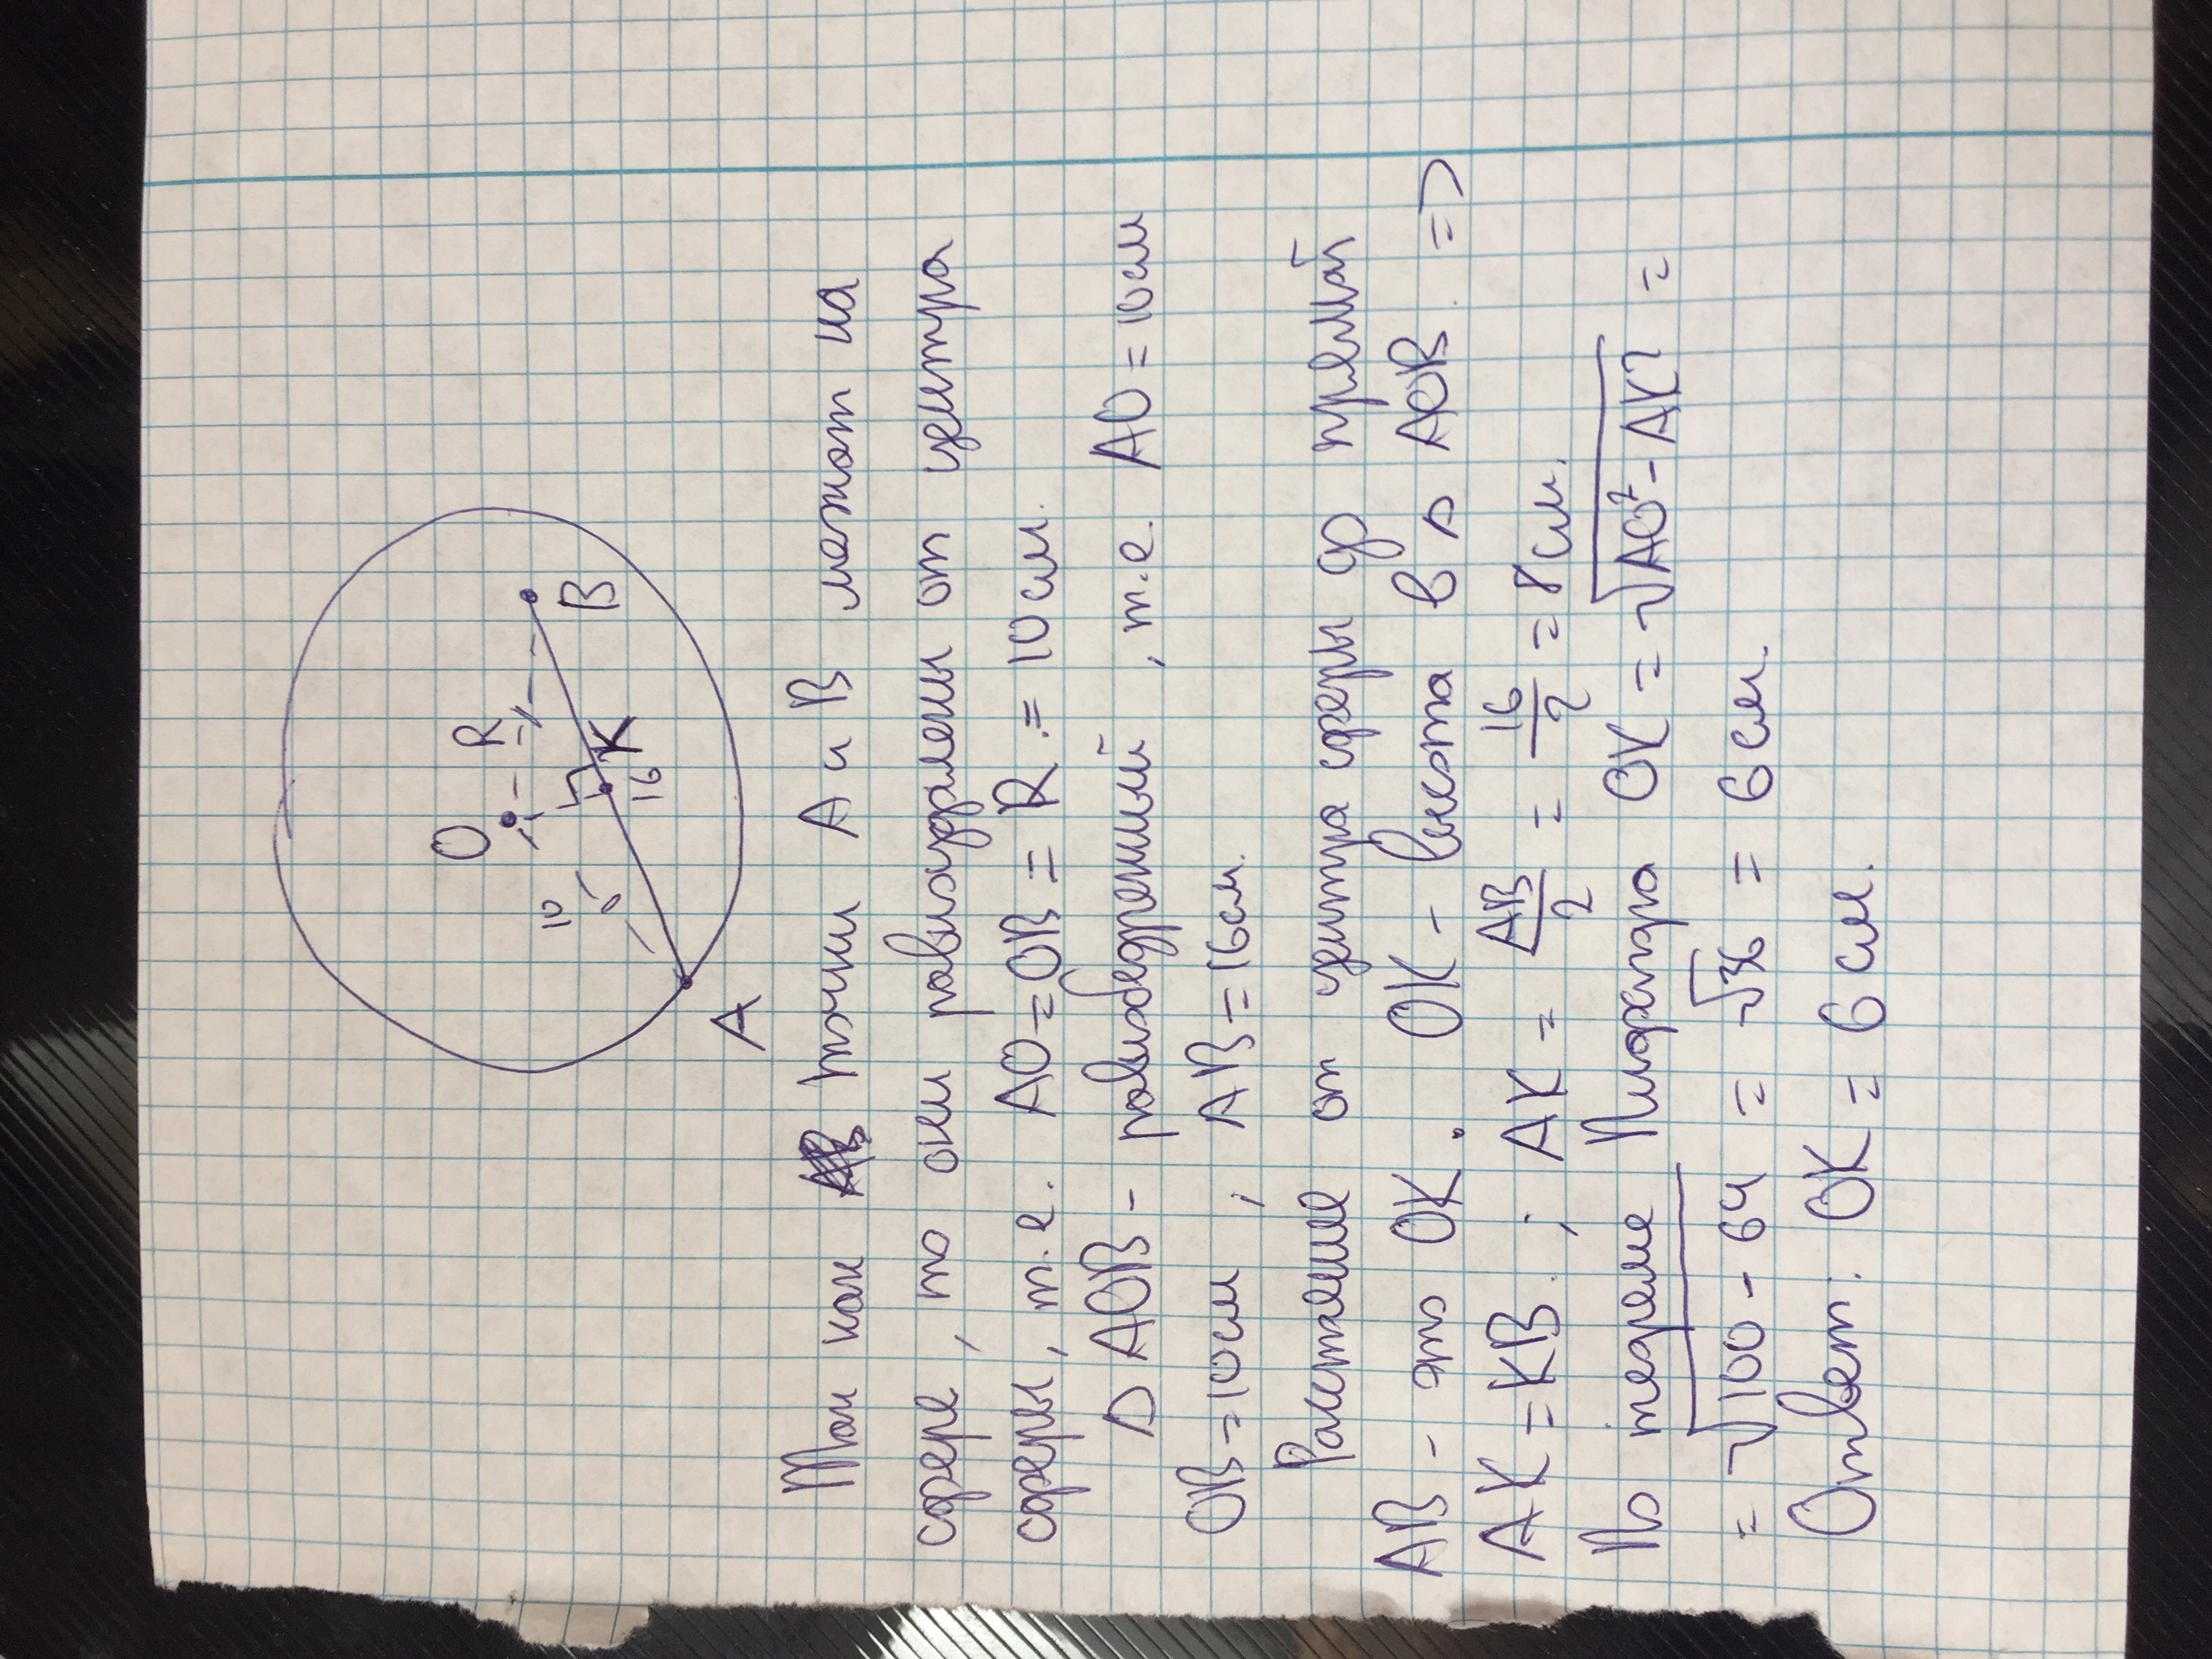 O
R
10
B
K
16
A
Так как точки A и B лежат на
сфере, то они равноудалены от центра
сферы, т.е. AO=OB=R=10см.
Δ AOB - равнобедренный, т.е. AO=10см
OB=10см; AB=16см.
Расстояние от центра сферы до прямой
AB - это OK. OK - высота в Δ AOB =>
AK=KB; AK = AB/2 = 16/2 = 8см.
По теореме Пифагора OK = √AO²-AK² =
= √100-64 = √36 = 6см.
Ответ: OK = 6см.